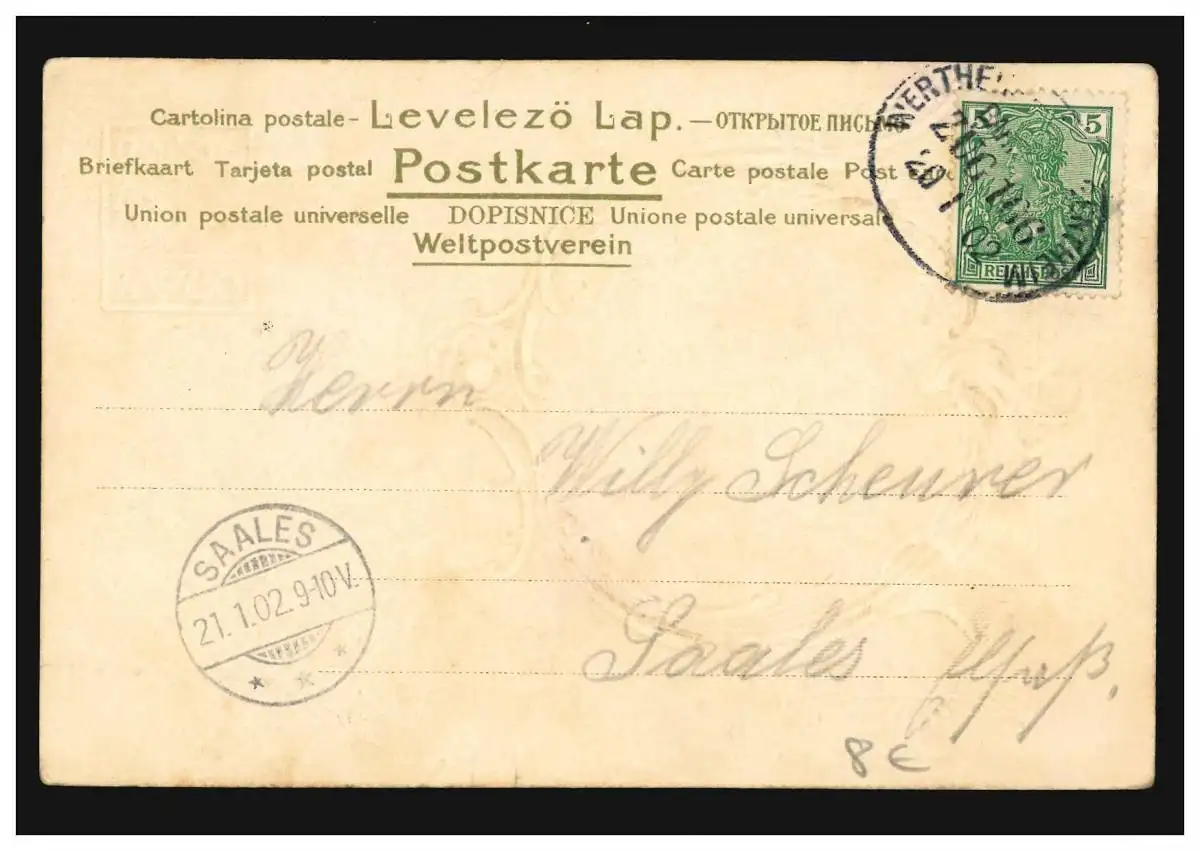 Cartolina postale - Levelező Lap. — ОТКРЫТОЕ ПИСЬМО
Briefkaart Tarjeta postal Postkarte Carte postale Post
Union postale universelle DOPISNICE Unione postale universale
Weltpostverein
5 5
REICHSPOST
WERTHEIM
ZUG 1106
20 1 02
Herrn
Willy Scheurer
Saales Elsaß.
SAALES
21.1.02.9-10V.
8 €